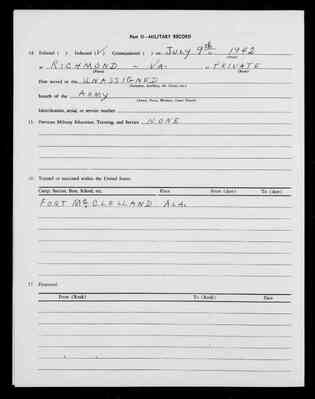 Part II—MILITARY RECORD
14. Enlisted ( ) Inducted (V) Commissioned ( ) on JULY 9th 1942
(Date)
at RICHMOND - VA. as PRIVATE
(Place) (Rank)
First served in the UNASSIGNED
(Infantry, Artillery, Air Corps, etc.)
branch of the ARMY
(Army, Navy, Marines, Coast Guard)
Identification, serial, or service number
15. Previous Military Education, Training, and Service NONE
16. Trained or stationed within the United States
Camp, Station, Base, School, etc. Place From (date) To (date)
FORT McCLELLAND ALA.
17. Promoted
From (Rank) To (Rank) Date